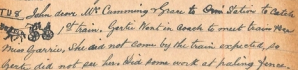 TUE John drove Mr Cumming & Grace to Station to catch
1st train. Gertie went in coach to meet train
Miss Garrie. She did not come by the train expected, so
Gertie did not see her. Did some work at paling fence.